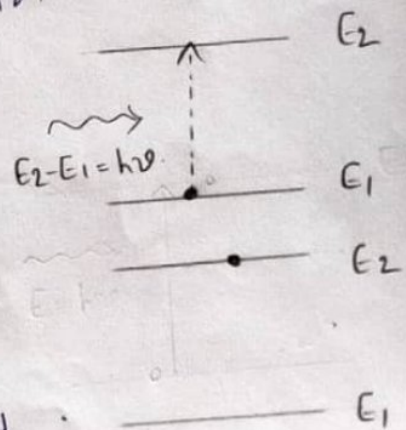 E2
E2-E1=hν
E1
E2
E1